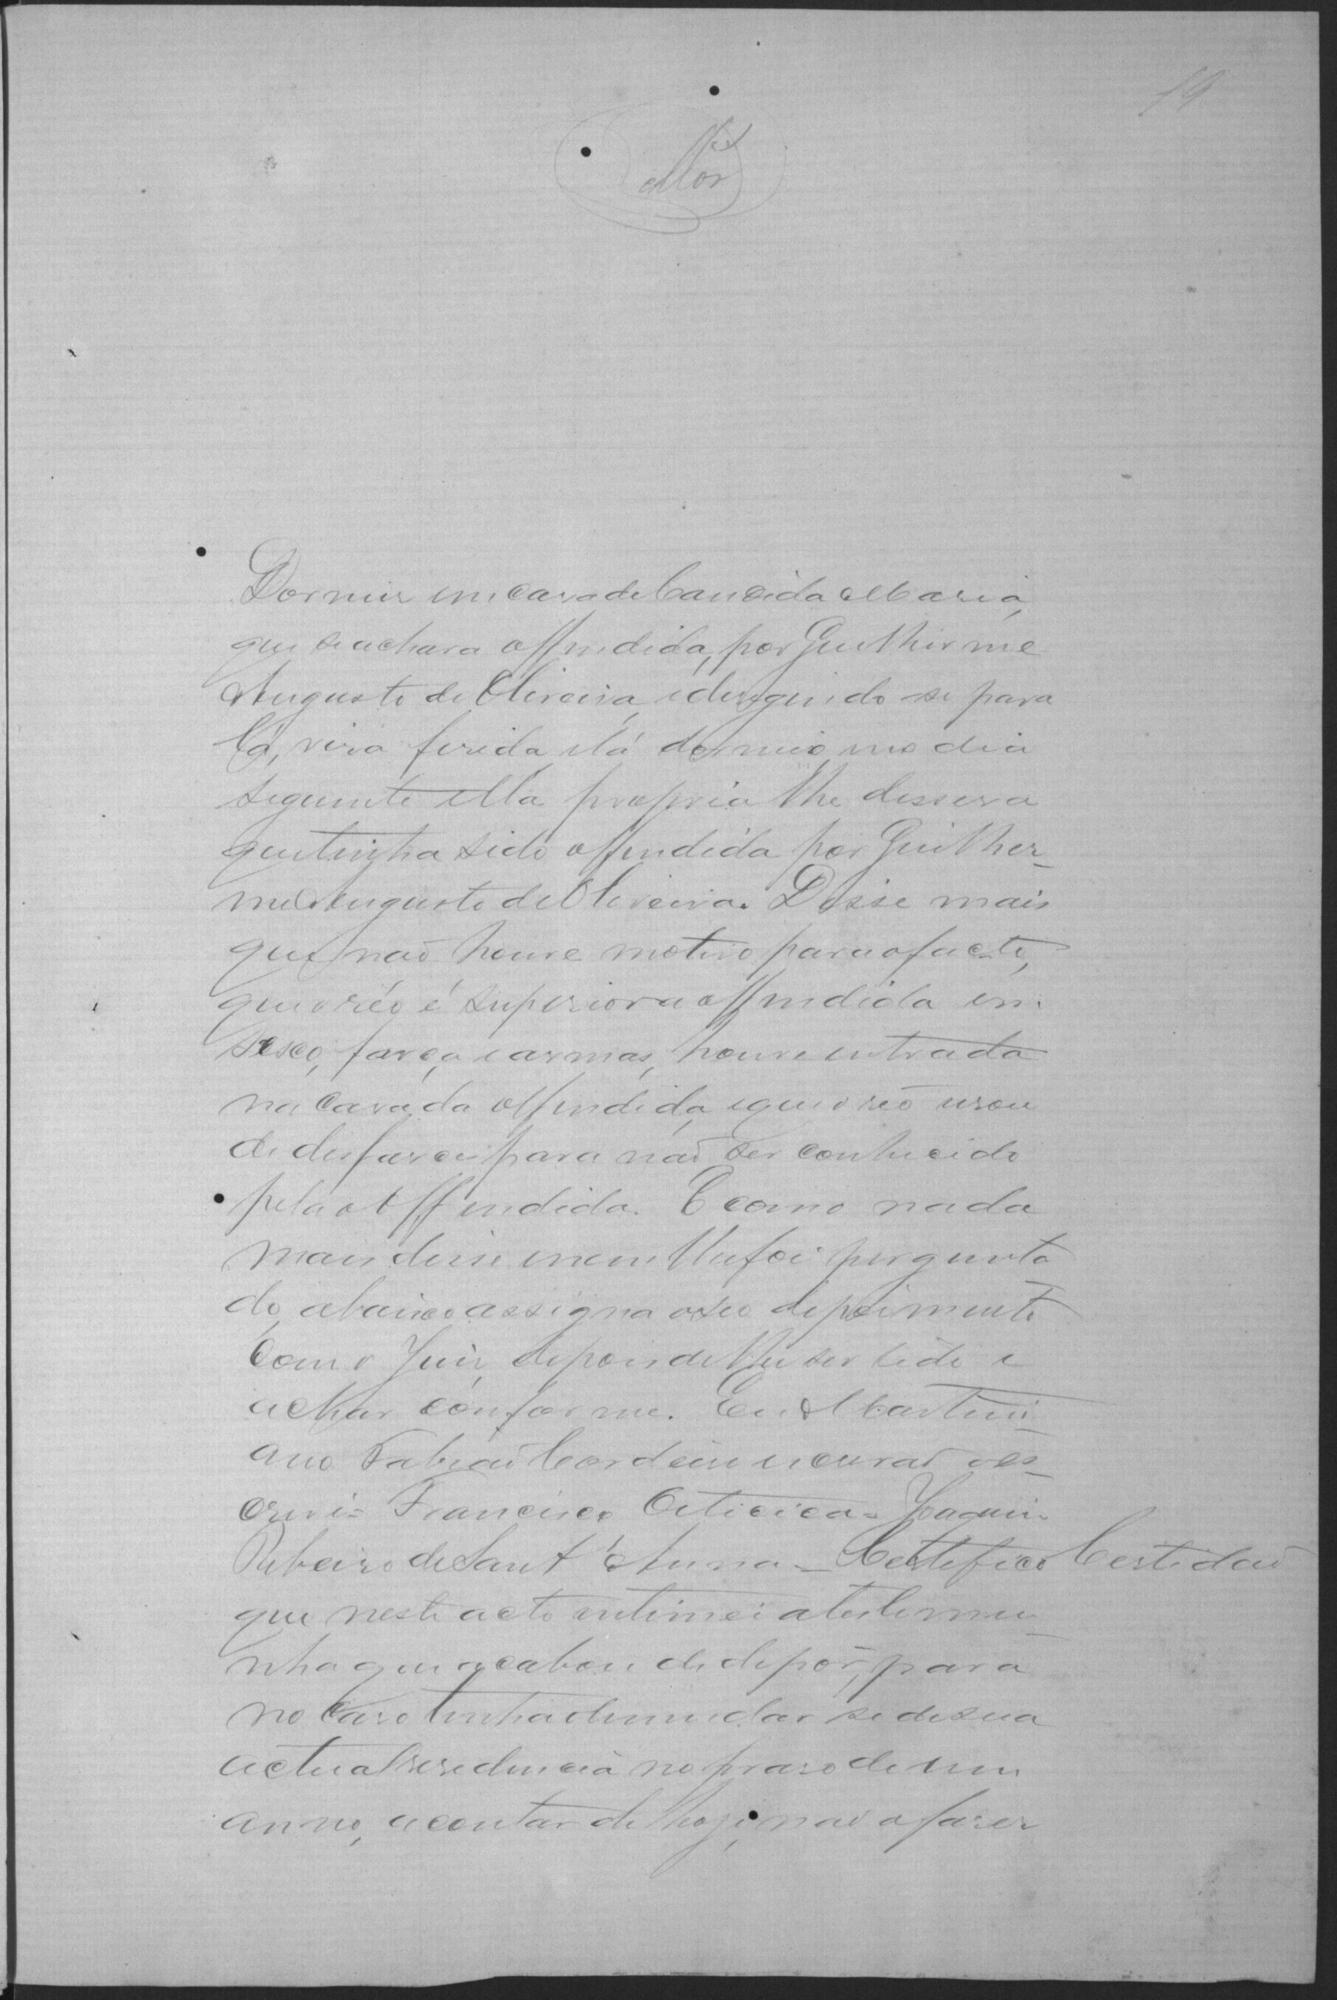 19
Dormir em casa de Candida Maria,
que se achava offendida, por Guilherme
Augusto de Oliveira, e derigindo se para
lá, vira ferida e lá dormio, no dia
seguinte ella propria lhe dissera
que tinha sido offendida por Guilher-
me Augusto de Oliveira. Disse mais
que não houve motivo para o facto,
que o réo é superior a offendida em
sexo, força e armas, houve entrada
na casa da offendida, e que o reo usou
de disfarce para não ser conhecido
pela offendida. E como nada
mais disse e nem lhe foi pergunta
do, abaixo assigna o seo depoimento
com o Juiz, depois de lhe ser lido e
achar conforme. Eu Martini
ano Fabião Cordeiro escrivão o es-
crevi = Francisco Oiticica = Joaquim
Ribeiro de Sant'Anna = Certefico Certidão
que neste acto intimei a testemu-
nha que acabou de depôr, para
no caso tenha de mudar se de sua
actual residencia no praso de um
anno, a contar de hoje, não o faser